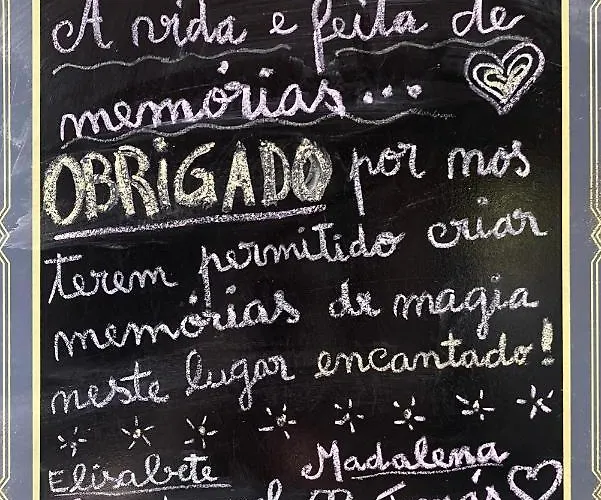 A vida e feita de
memórias...
OBRIGADO por nos
terem permitido criar
memórias de magia
neste lugar encantado!
Elisabete Madalena